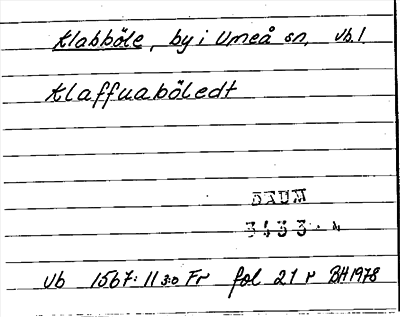 Klabböle, by i Umeå sn, Vb.l.
Klaffuaböledt
DAUM
3433
Vb 1567:11 Fr fol 21 r BH1978